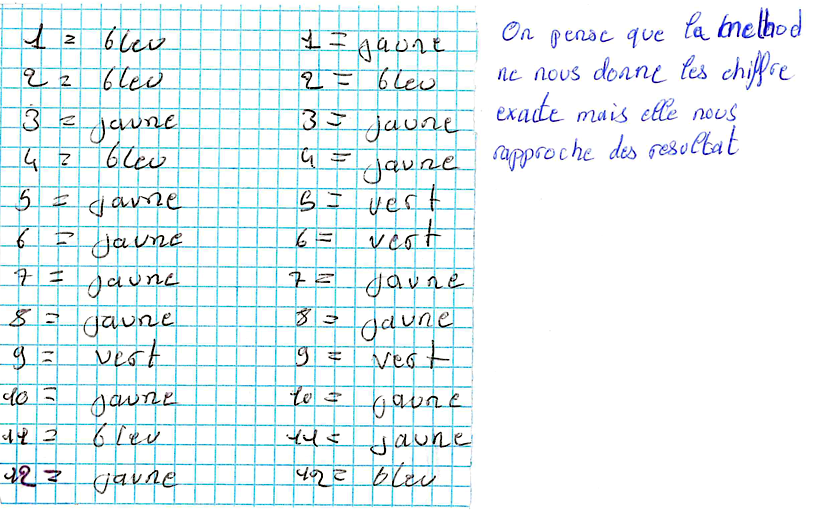 1 = bleu
2 = bleu
3 = jaune
4 = bleu
5 = jaune
6 = jaune
7 = jaune
8 = jaune
9 = vert
10 = jaune
11 = bleu
12 = jaune
1 = jaune
2 = bleu
3 = jaune
4 = jaune
5 = vert
6 = vert
7 = jaune
8 = jaune
9 = vert
10 = jaune
11 = jaune
12 = bleu
On pense que la method
ne nous donne les chiffre
exacte mais elle nous
rapproche des resultat